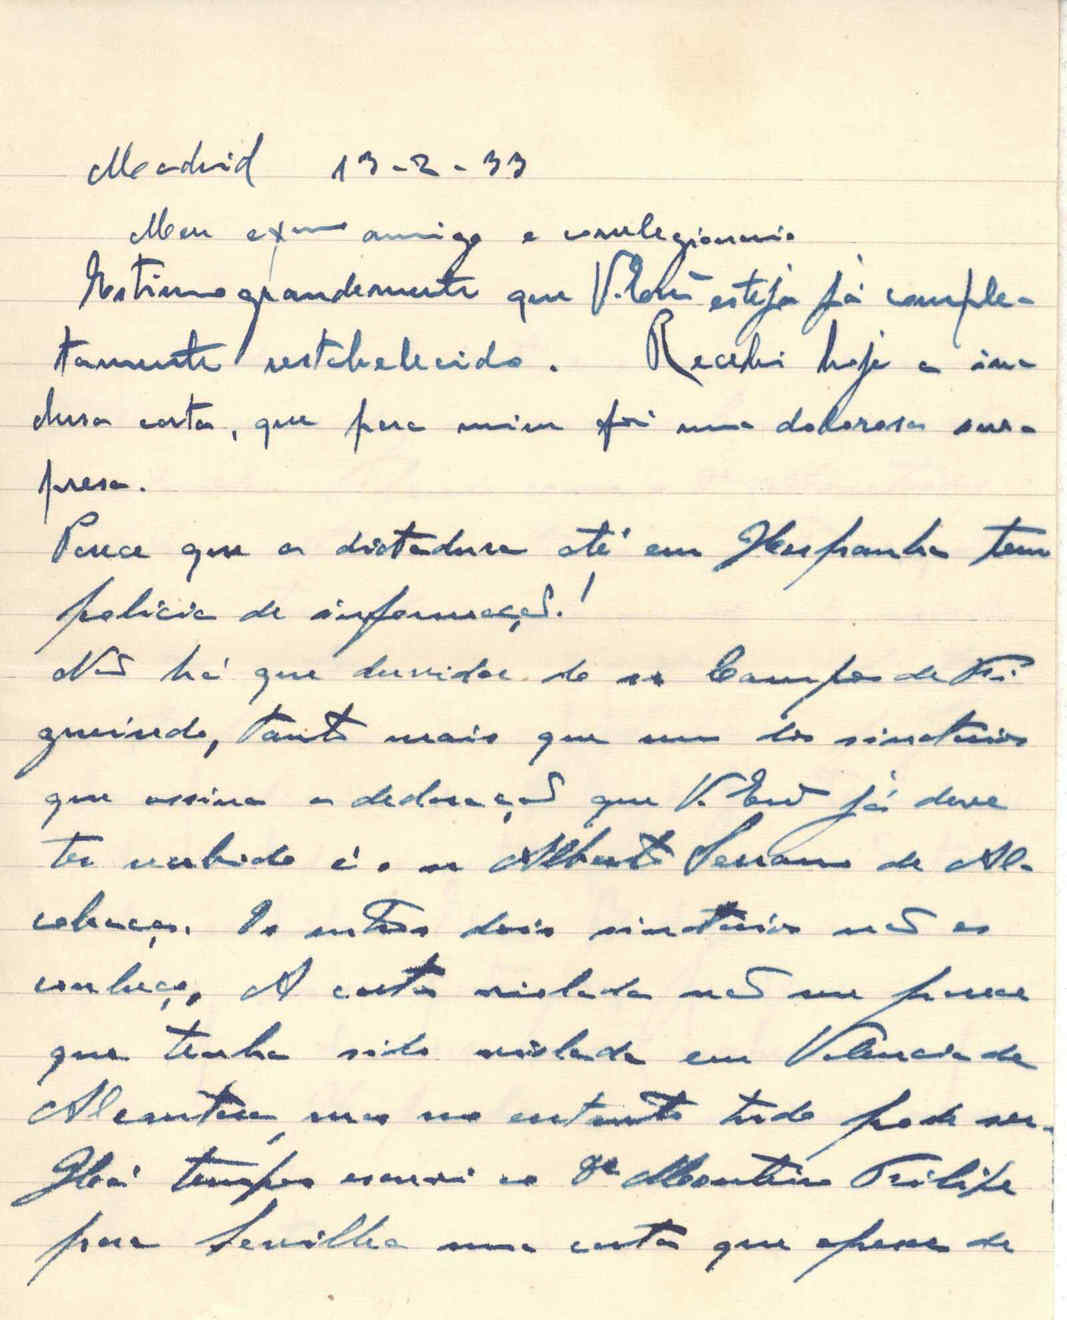 Madrid 13-2-33
Meu exmo amigo e correlegionario
Estimo grandemente que V. Exª esteja já comple-
tamente restabelecido. Recebi hoje a in-
clusa carta, que para mim foi uma dolorosa sur-
presa.
Parece que a dictadura até em Hespanha tem
policia de informação!
Não há que duvidar do sr Campos de Fi-
gueiredo, tanto mais que um dos sinatarios
que assina a declaração que V. Exª já deve
ter recebido é o sr Albert Serrano de Al-
cobaça. Os outros dois sinatarios não os
conheço. A carta violada não me parece
que tenha sido violada em Valencia de
Alcantara, mas no entanto tudo pode ser.
Há tempos escrevi ao Dr Monteiro Filipe
para Sevilha uma carta que apesar de